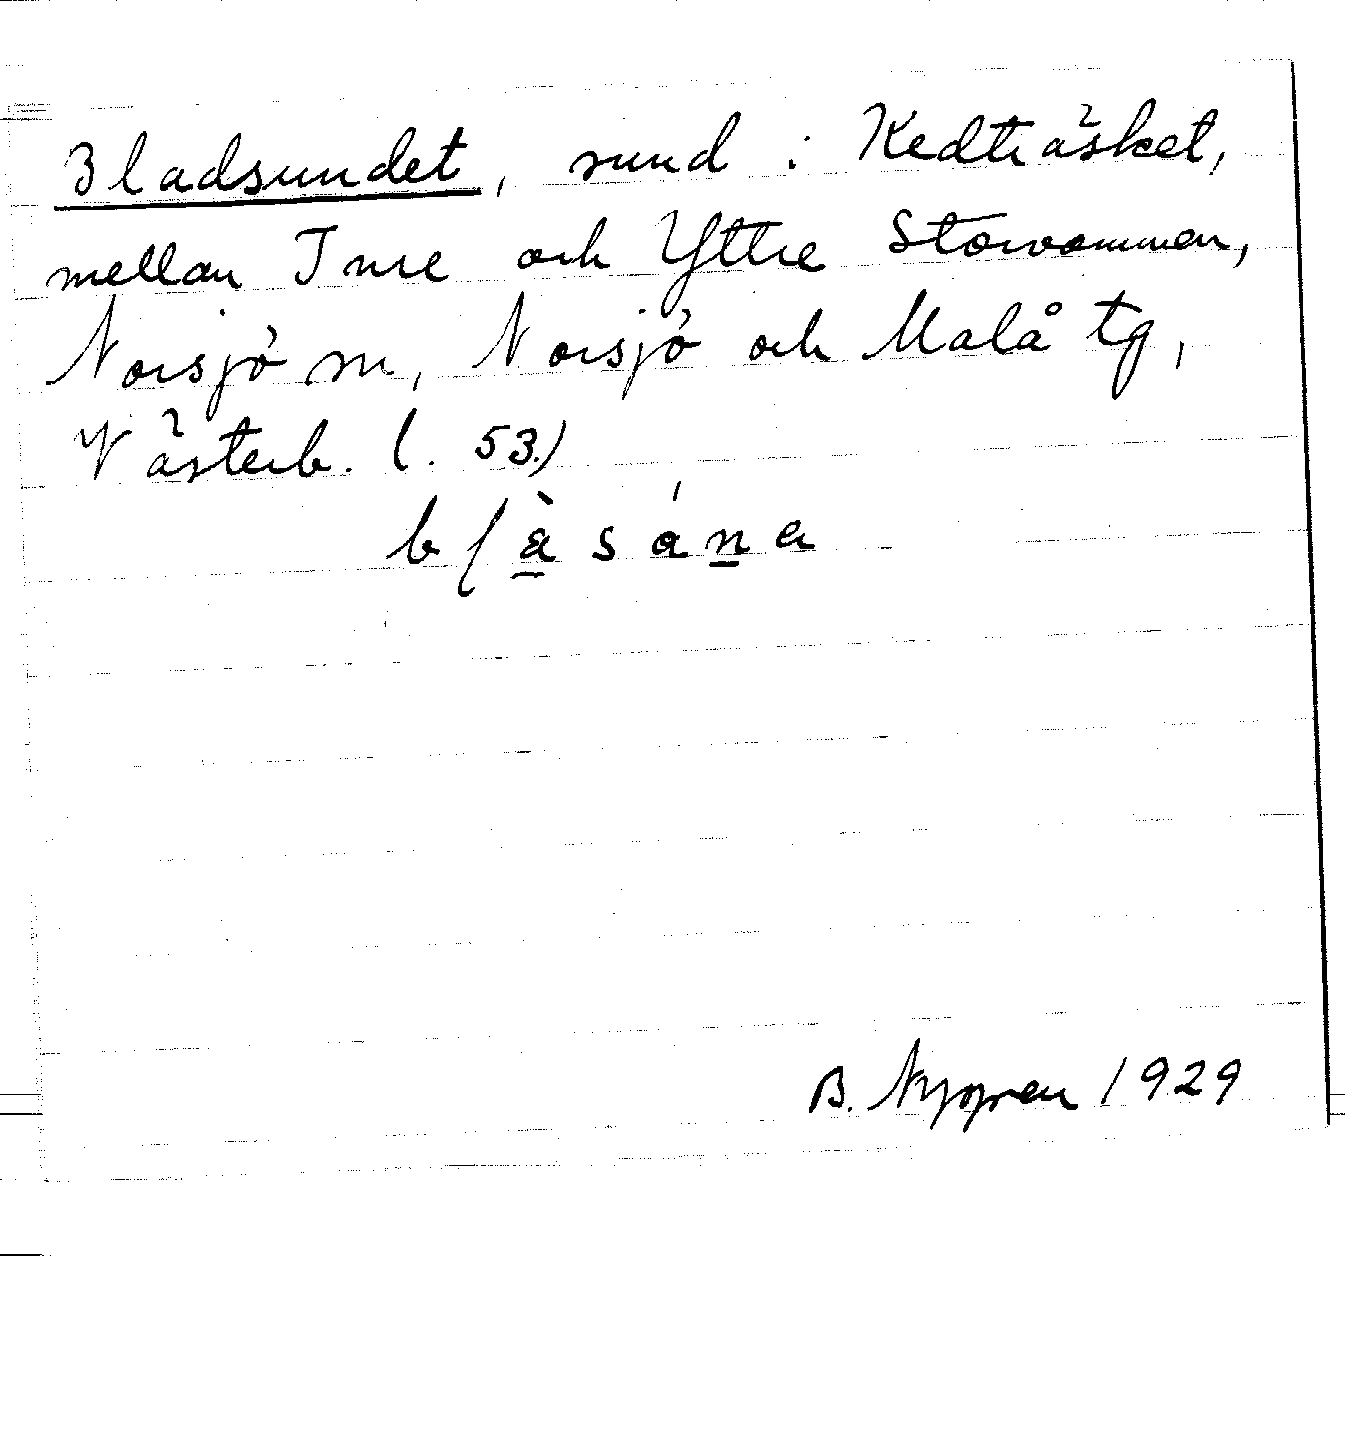 Bladsundet, sund i Kedträsket,
mellan Inre och Yttre Storvammen,
Norsjö sn, Norsjö och Malå tg,
Västerb. l. 53.)
B. Nygren 1929